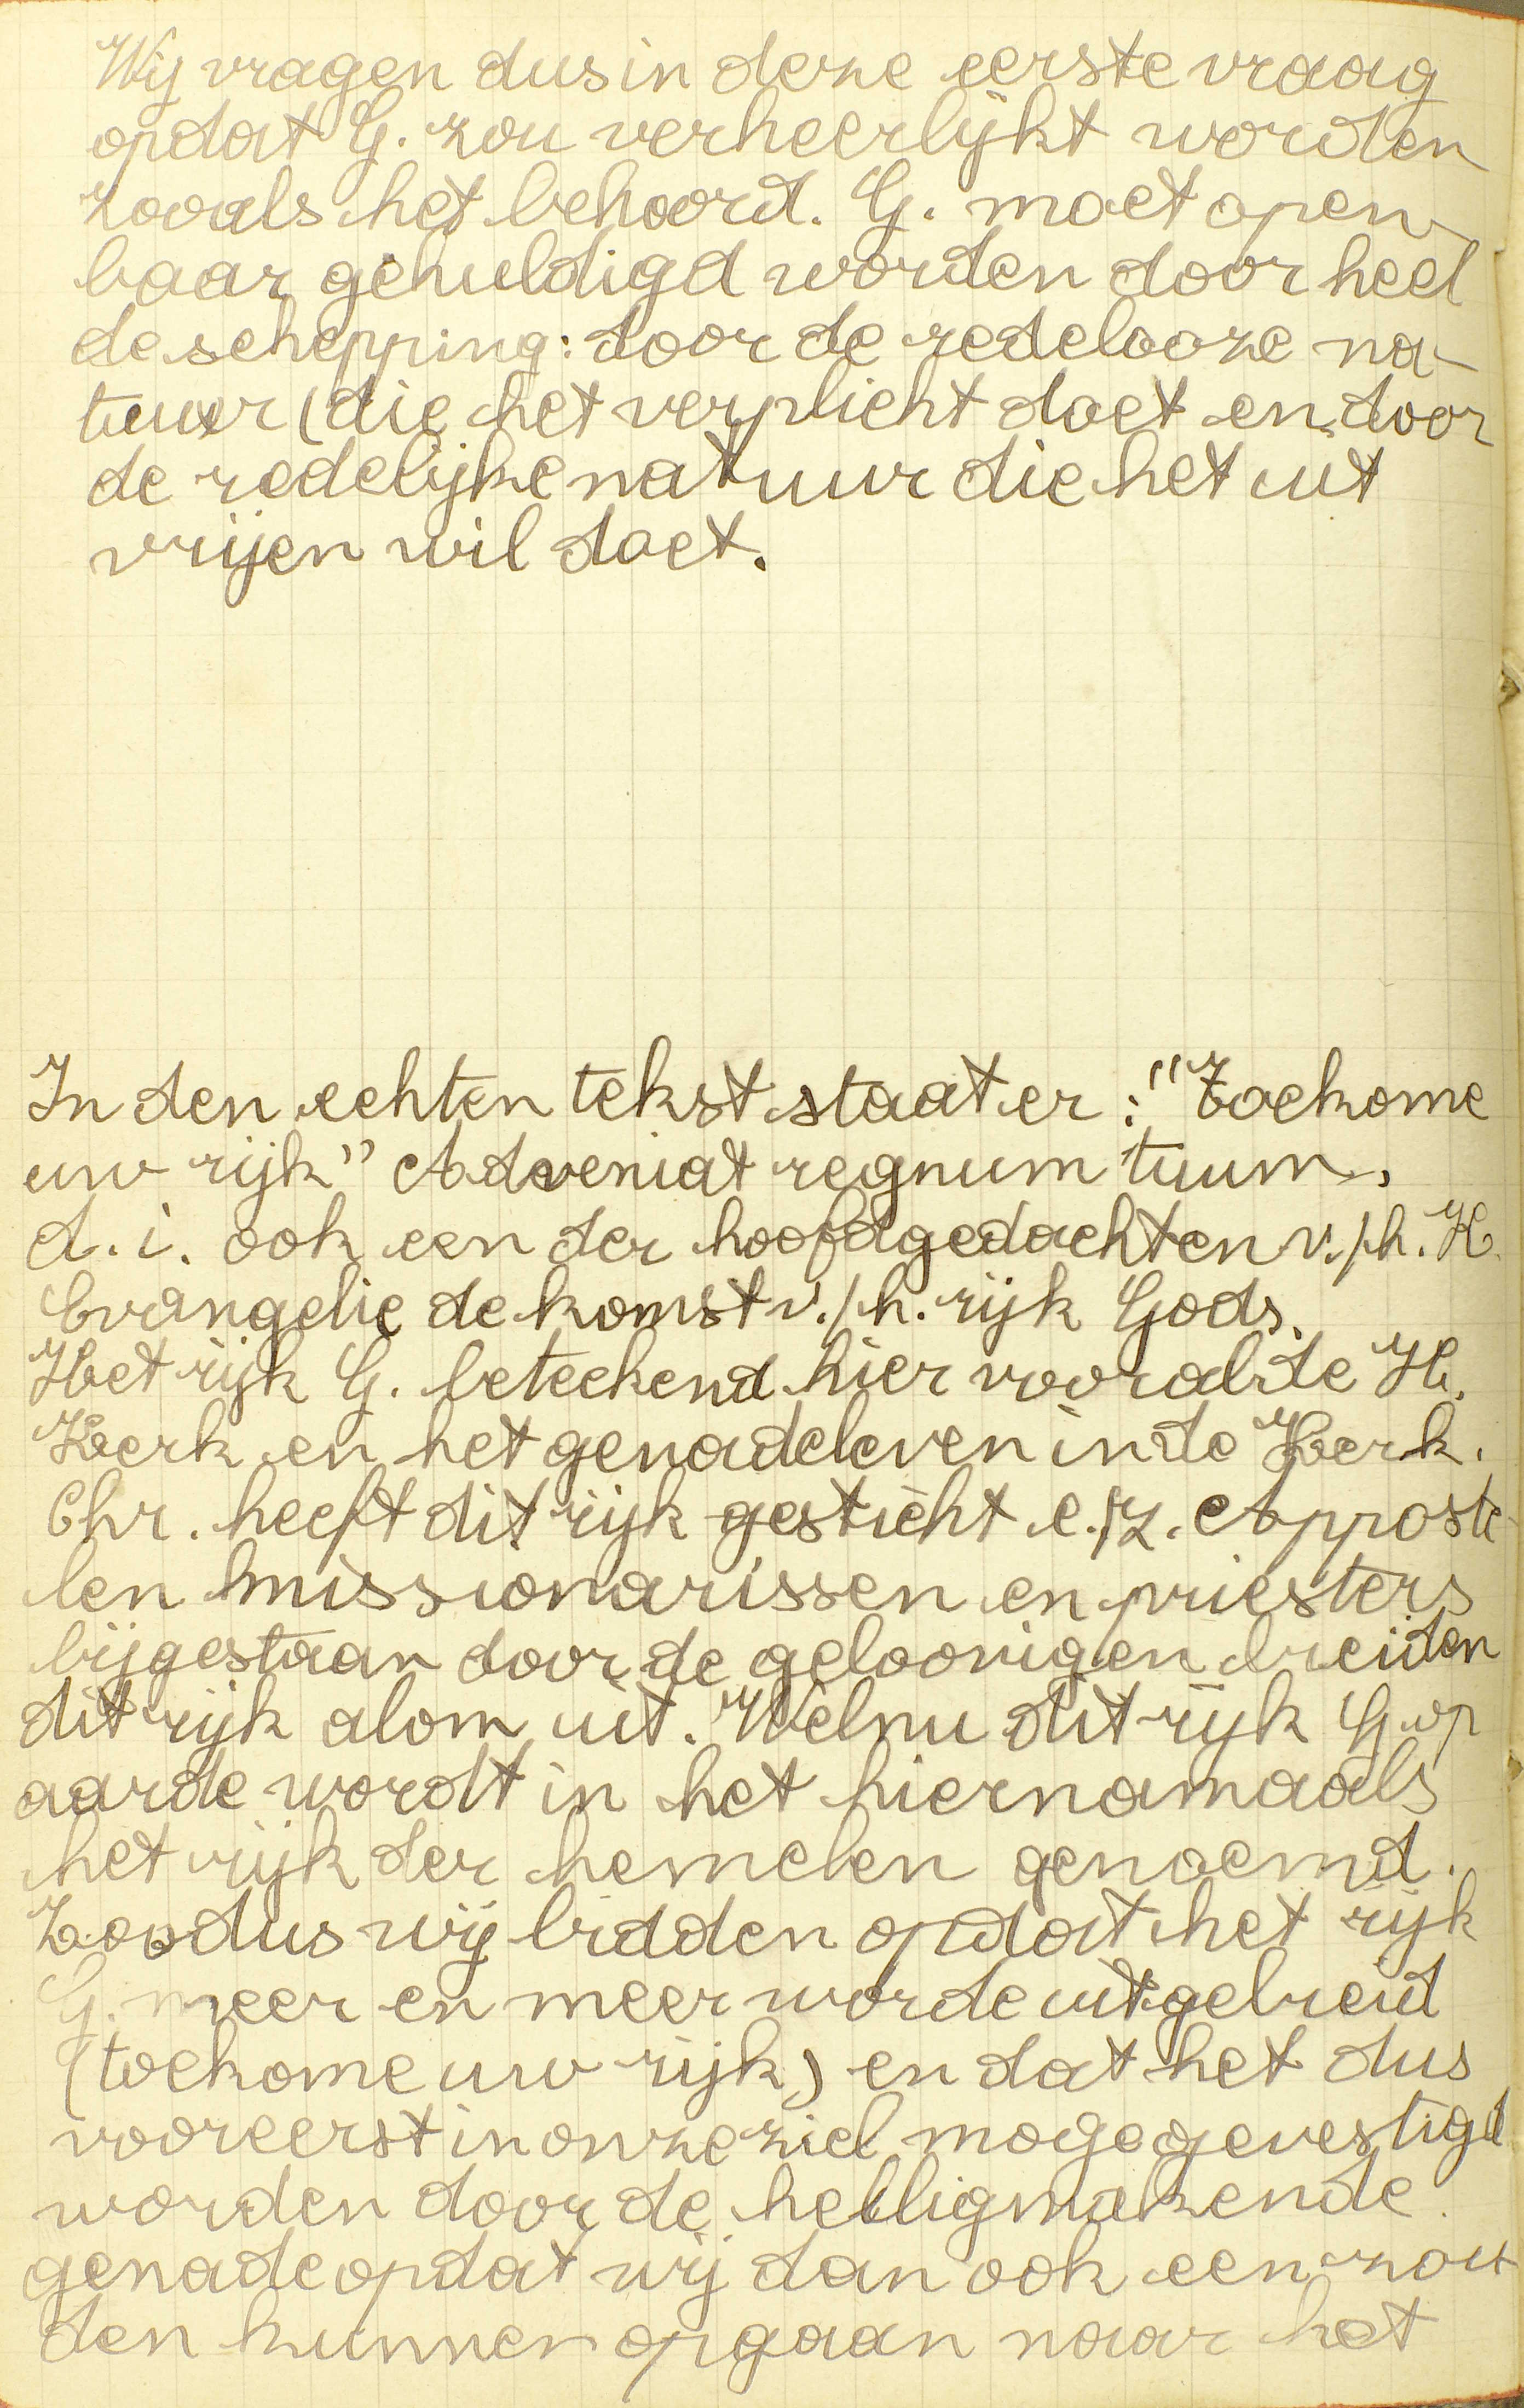 Wij vragen dus in deze eerste vraag
opdat G. zou verheerlijkt worden
zooals het behoord. G. moet open-
baar gehuldigd worden door heel
de schepping: door de redelooze na-
tuur (die het verplicht doet en door
de redelijke natuur die het uit
vrijen wil doet.
In den echten tekst staat er : "Toekome
uw rijk" Adveniat regnum tuum.
d. i. ook een der hoofdgedachten v./h. H.
Evangelie de komst v./h. rijk Gods.
Het rijk G. beteekend hier vooral de H.
Kerk en het genadeleven in de Kerk.
Chr. heeft dit rijk gesticht e./z. Apposte-
len missionarissen en priesters
bijgestaan door de geloovigen breiden
dit rijk alom uit. Welnu dit rijk G. op
aarde wordt in het hiernamaals
het rijk der hemelen genoemd.
Zoo dus wij bidden opdat het rijk
G. meer en meer worde uitgebreid
(toekome uw rijk) en dat het dus
vooreerst in onze ziel moge gevestigd
worden door de heiligmakende
genade opdat wij dan ook een zou
den kunnen opgaan naar het